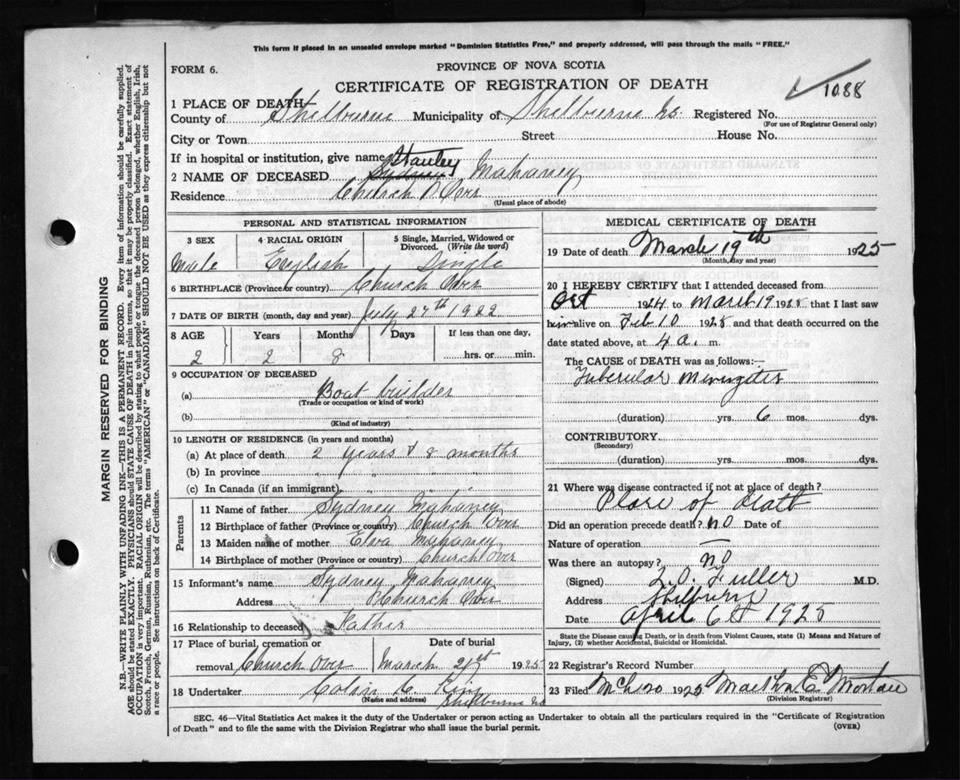 This form if placed in an unsealed envelope marked "Dominion Statistics Free," and properly addressed, will pass through the mails "FREE."
FORM 6.
PROVINCE OF NOVA SCOTIA
CERTIFICATE OF REGISTRATION OF DEATH
1088
1 PLACE OF DEATH—
County of Shelburne Municipality of Shelburne Registered No.
(For use of Registrar General only)
City or Town Street House No.
If in hospital or institution, give name
Stanley
2 NAME OF DECEASED Sydney Mahaney
Residence Church Over
(Usual place of abode)
PERSONAL AND STATISTICAL INFORMATION
3 SEX 4 RACIAL ORIGIN 5 Single, Married, Widowed or Divorced. (Write the word)
Male English Single
6 BIRTHPLACE (Province or country) Church Over
7 DATE OF BIRTH (month, day and year) July 27th 1922
8 AGE Years Months Days If less than one day,
2 2 8 hrs. or min.
9 OCCUPATION OF DECEASED
(a) Boat builder
(Trade or occupation or kind of work)
(b)
(Kind of industry)
10 LENGTH OF RESIDENCE (in years and months)
(a) At place of death 2 years & 8 months
(b) In province " "
(c) In Canada (if an immigrant)
Parents
11 Name of father Sydney Mahaney
12 Birthplace of father (Province or country) Church Over
13 Maiden name of mother Elva Mahaney
14 Birthplace of mother (Province or country) Church Over
15 Informant's name Sydney Mahaney
Address Church Over
16 Relationship to deceased Father
17 Place of burial, cremation or Date of burial
removal Church Over March 1925
18 Undertaker Colin C. King
(Name and address) Shelburne NS
MEDICAL CERTIFICATE OF DEATH
19 Date of death March 19th 1925
(Month, day and year)
20 I HEREBY CERTIFY that I attended deceased from
Oct 1924 to March 19 1925 that I last saw
him alive on Feb 10 1925 and that death occurred on
date stated above, at 4 a. m.
The CAUSE OF DEATH was as follows:—
Tubercular Meningites
(duration) yrs. 6 mos. dys.
CONTRIBUTORY
(Secondary)
(duration) yrs. mos. dys.
21 Where was disease contracted if not at place of death?
Place of death
Did an operation precede death? no Date of
Nature of operation —
Was there an autopsy? no
(Signed) L. O. Fuller M.D.
Address Shelburne
Date April 6th 1925
State the Disease causing Death, or in death from Violent Causes, state (1) Means and Nature of
Injury, (2) whether Accidental, Suicidal or Homicidal.
22 Registrar's Record Number
23 Filed Mch 20 1925 Martha E.
(Division Registrar)
SEC. 46—Vital Statistics Act makes it the duty of the Undertaker or person acting as Undertaker to obtain all the particulars required in the "Certificate of Registration
of Death" and to file the same with the Division Registrar who shall issue the burial permit.
(OVER)
MARGIN RESERVED FOR BINDING
N.B.—WRITE PLAINLY WITH UNFADING INK—THIS IS A PERMANENT RECORD. Every item of information should be carefully supplied.
AGE should be stated EXACTLY. PHYSICIANS should STATE CAUSE OF DEATH in plain terms, so that it may be properly classified. Exact statement of
OCCUPATION is very important. RACIAL ORIGIN will be described by stating to what people or tongue the deceased person belonged, whether English, Irish,
Scotch, French, German, Russian, Ruthenian, etc. The terms "AMERICAN" or "CANADIAN" SHOULD NOT BE USED as they express citizenship but not
a race or people. See instructions on back of Certificate.